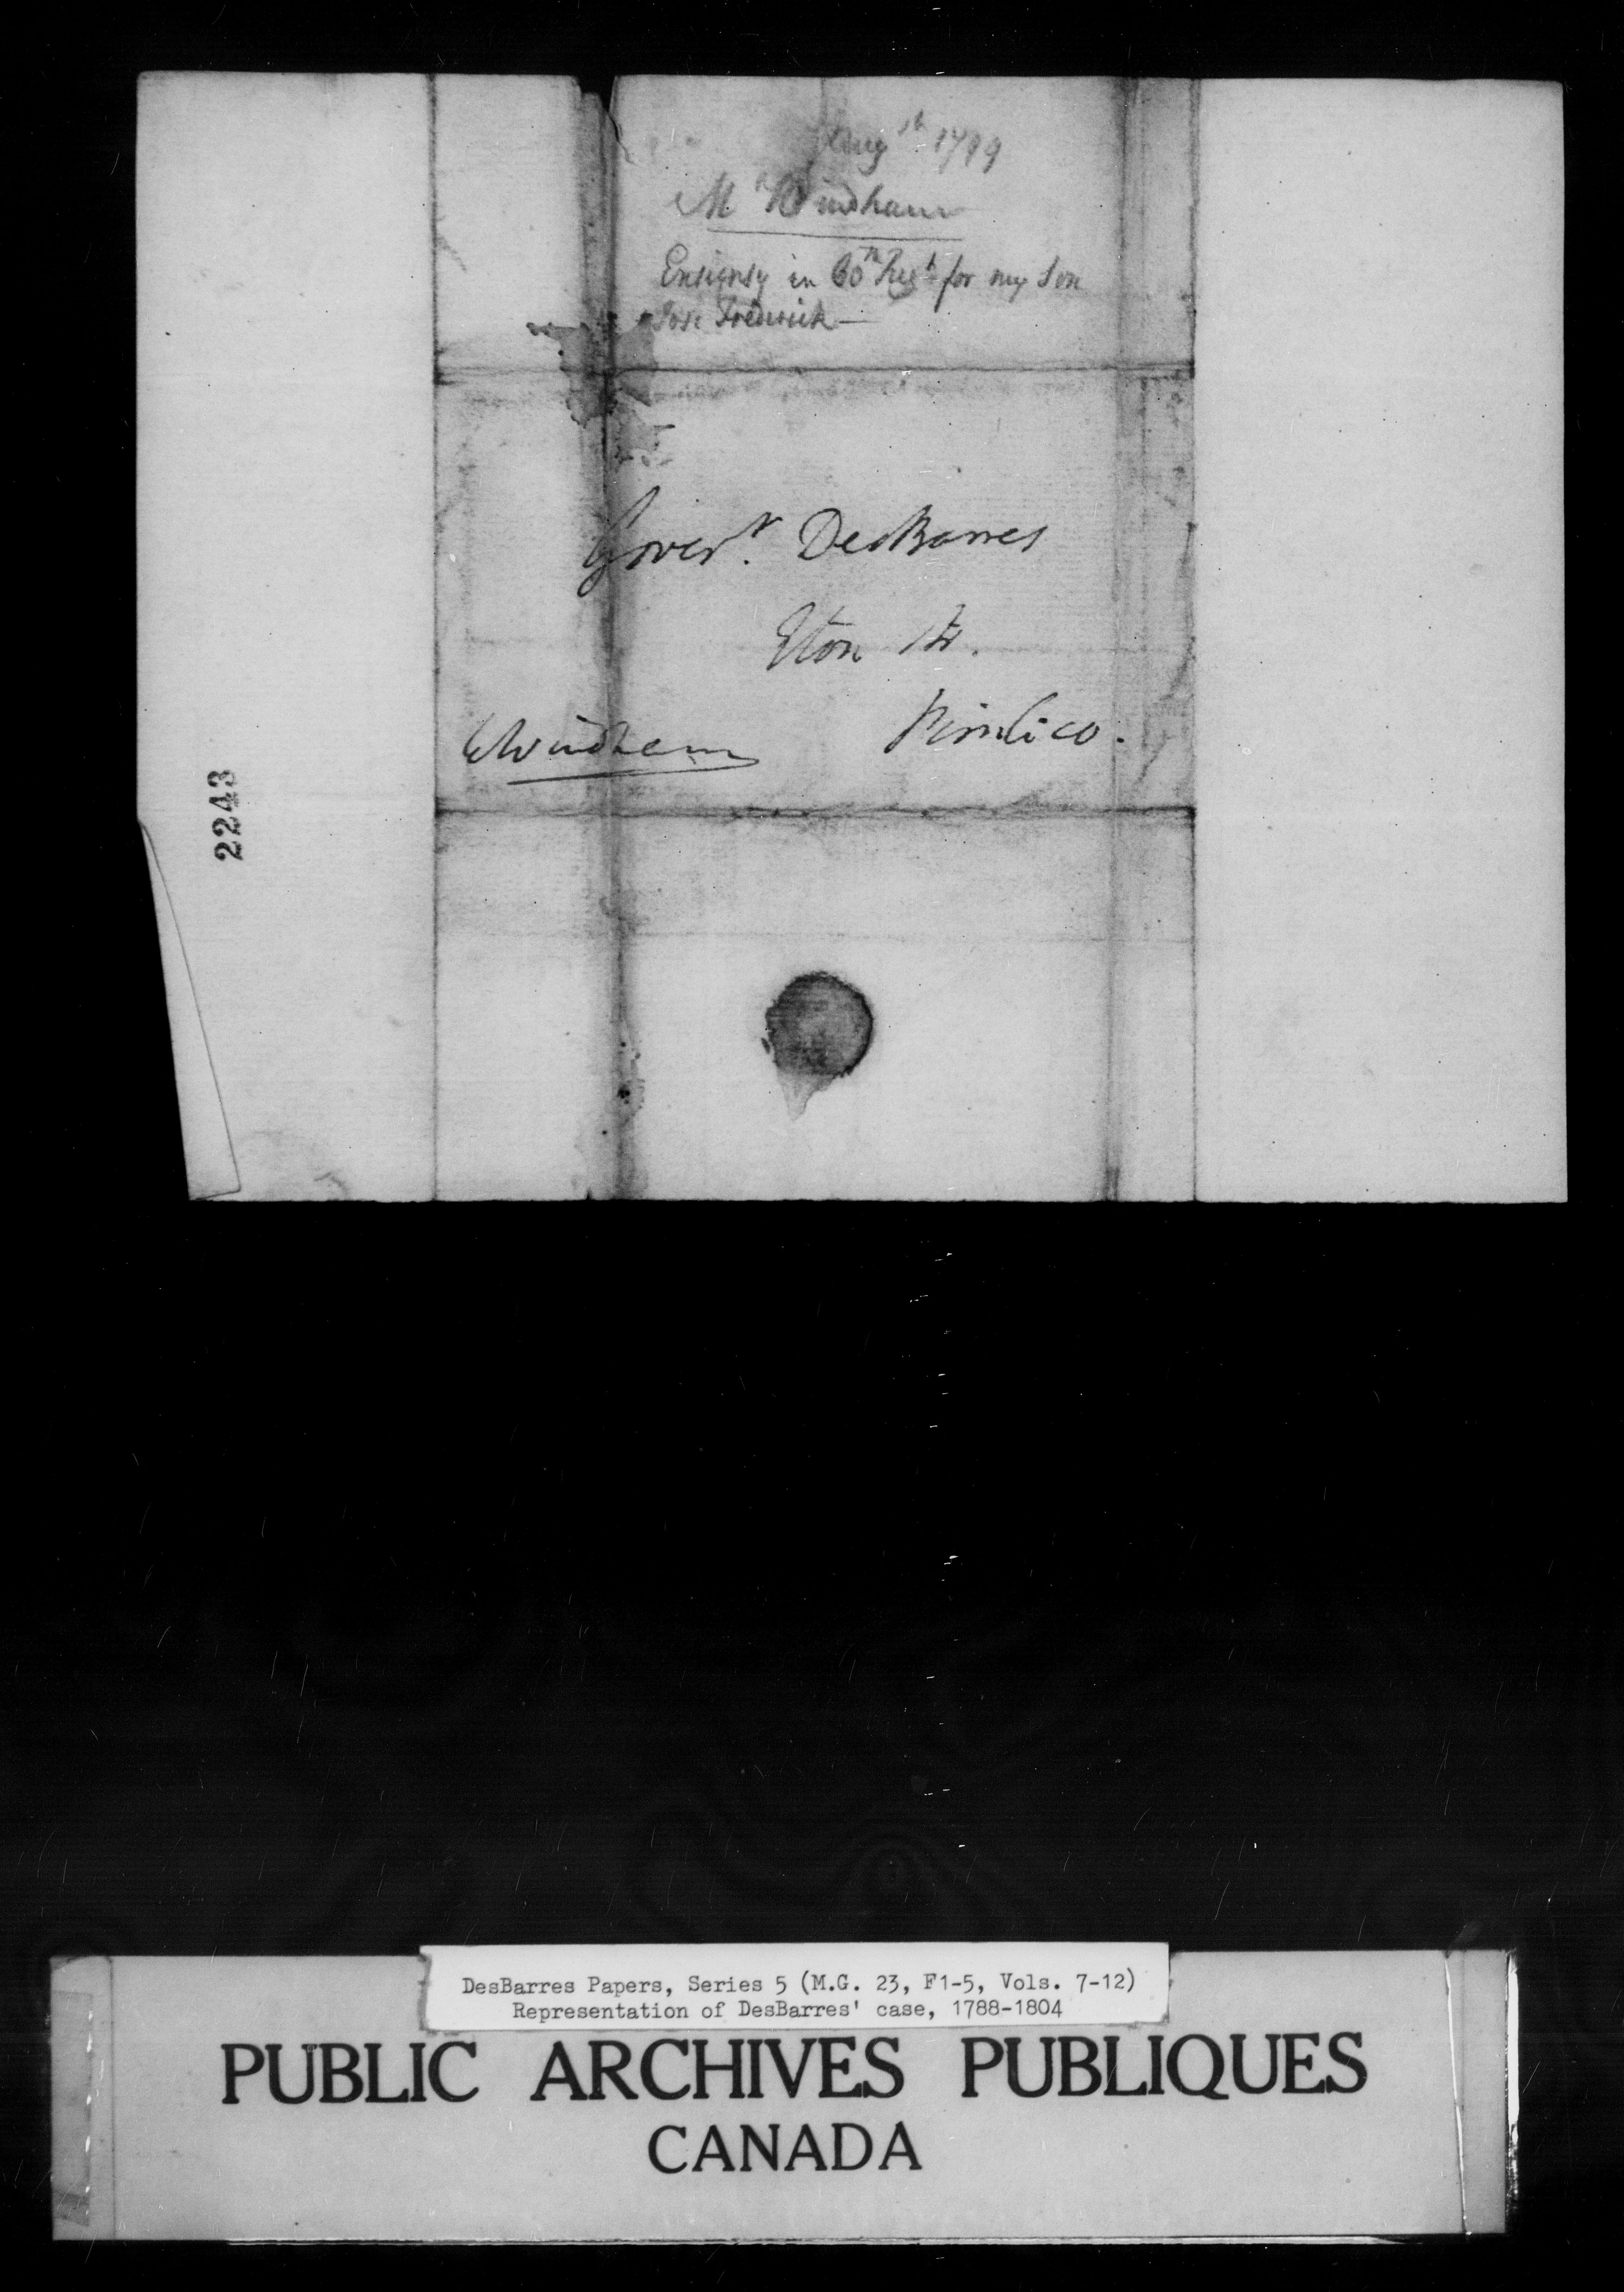 Augst 1799
Mr Windham
Ensigncy in 60th Regt for my Son
Jose Frederick —
Governr. DesBarres
Eton St.
Windham
Pimlico.
2243
DesBarres Papers, Series 5 (M.G. 23, F1-5, Vols. 7-12)
Representation of DesBarres' case, 1788-1804
PUBLIC ARCHIVES PUBLIQUES
CANADA